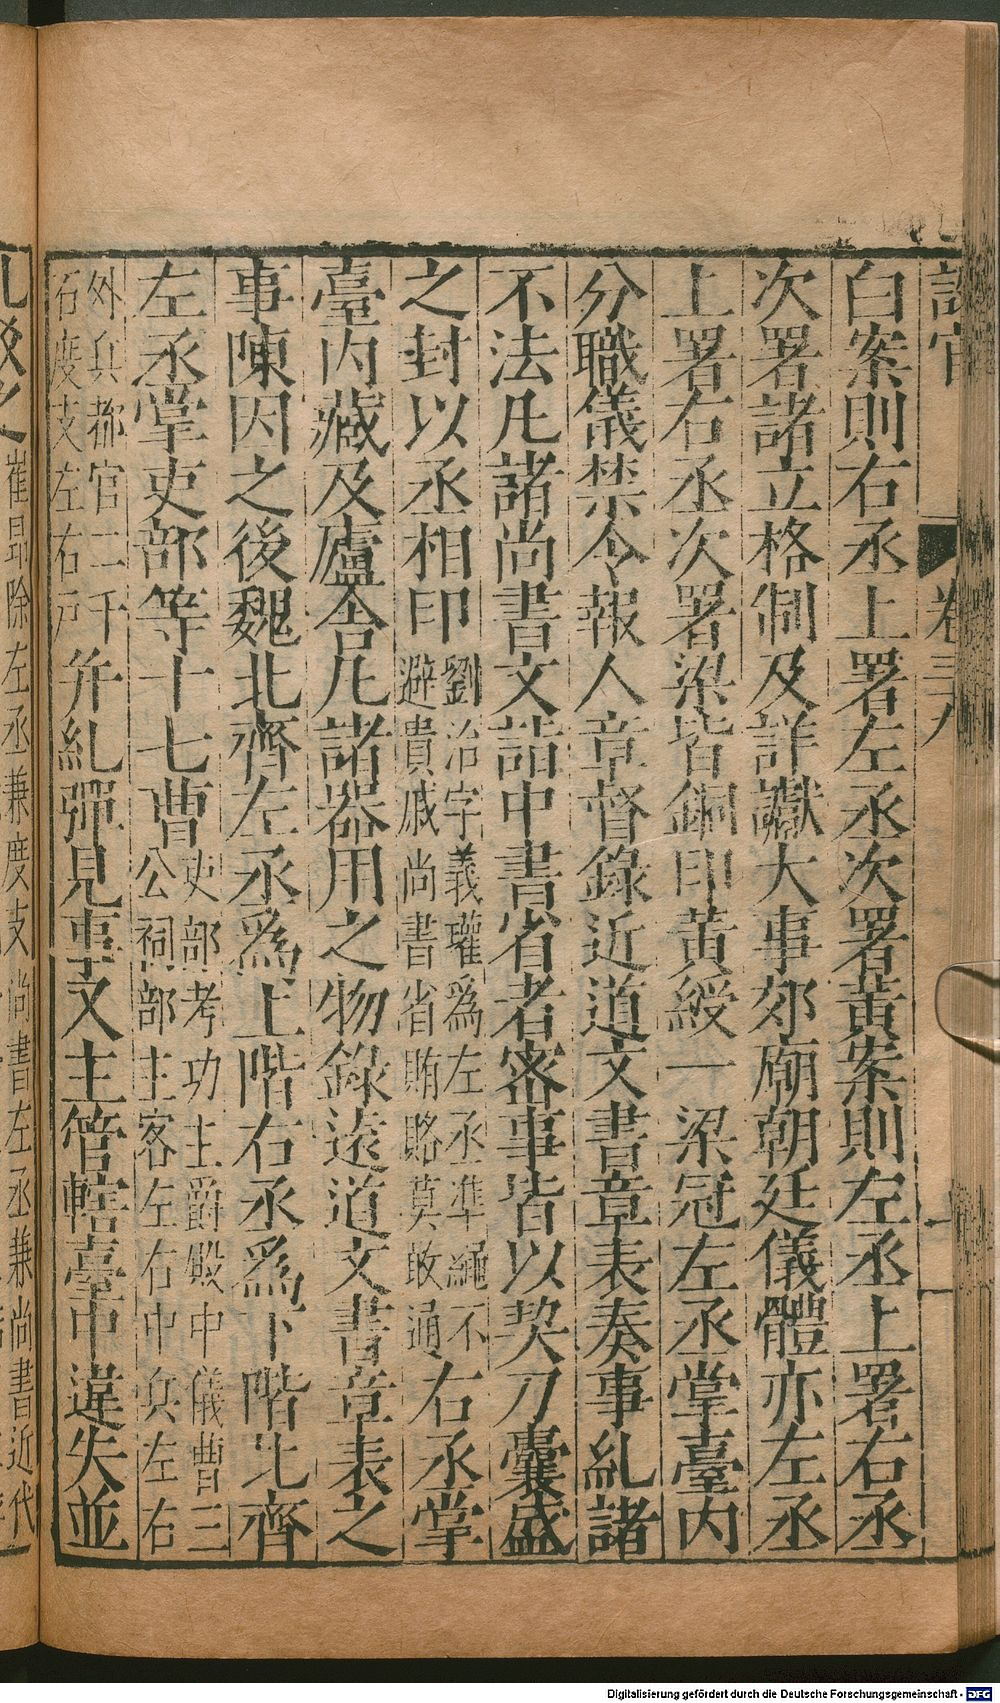 設官 卷三八
白案則右丞上署左丞次署黃案則左丞上署右丞
次署諸立格制及詳讞大事郊廟朝廷儀體亦左丞
上署右丞次署梁皆銅印黃綬一梁冠左丞掌臺內
分職儀禁令報人章督錄近道文書章表奏事糺諸
不法凡諸尚書文詣中書省者密事皆以契刀囊盛
之封以丞相印劉治字義瓘爲左丞準繩不避貴戚尚書省賄賂莫敢通右丞掌
臺內藏及廬舍凡諸器用之物錄遠道文書章表之
事陳因之後魏北齊左丞爲上階右丞爲下階北齊
左丞掌吏部等十七曹吏部考功主爵殿中儀曹三公祠部主客左右中兵左右
外兵都官二千石度支左右戶并糺彈見事又主管轄臺中違失並
糺駁之崔昂除左丞兼度支尚書左丞兼尚書近代
Digitalisierung gefördert durch die Deutsche Forschungsgemeinschaft - DFG